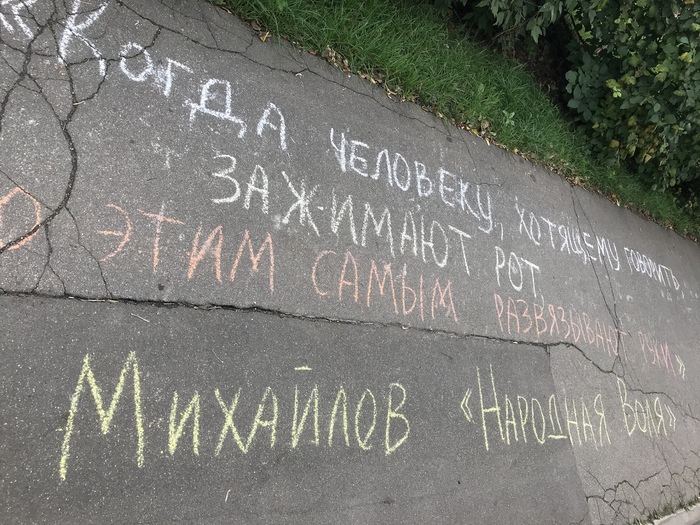 «Когда человеку, хотящему говорить,
зажимают рот,
о этим самым развязывают руки.»
Михайлов «Народная Воля»